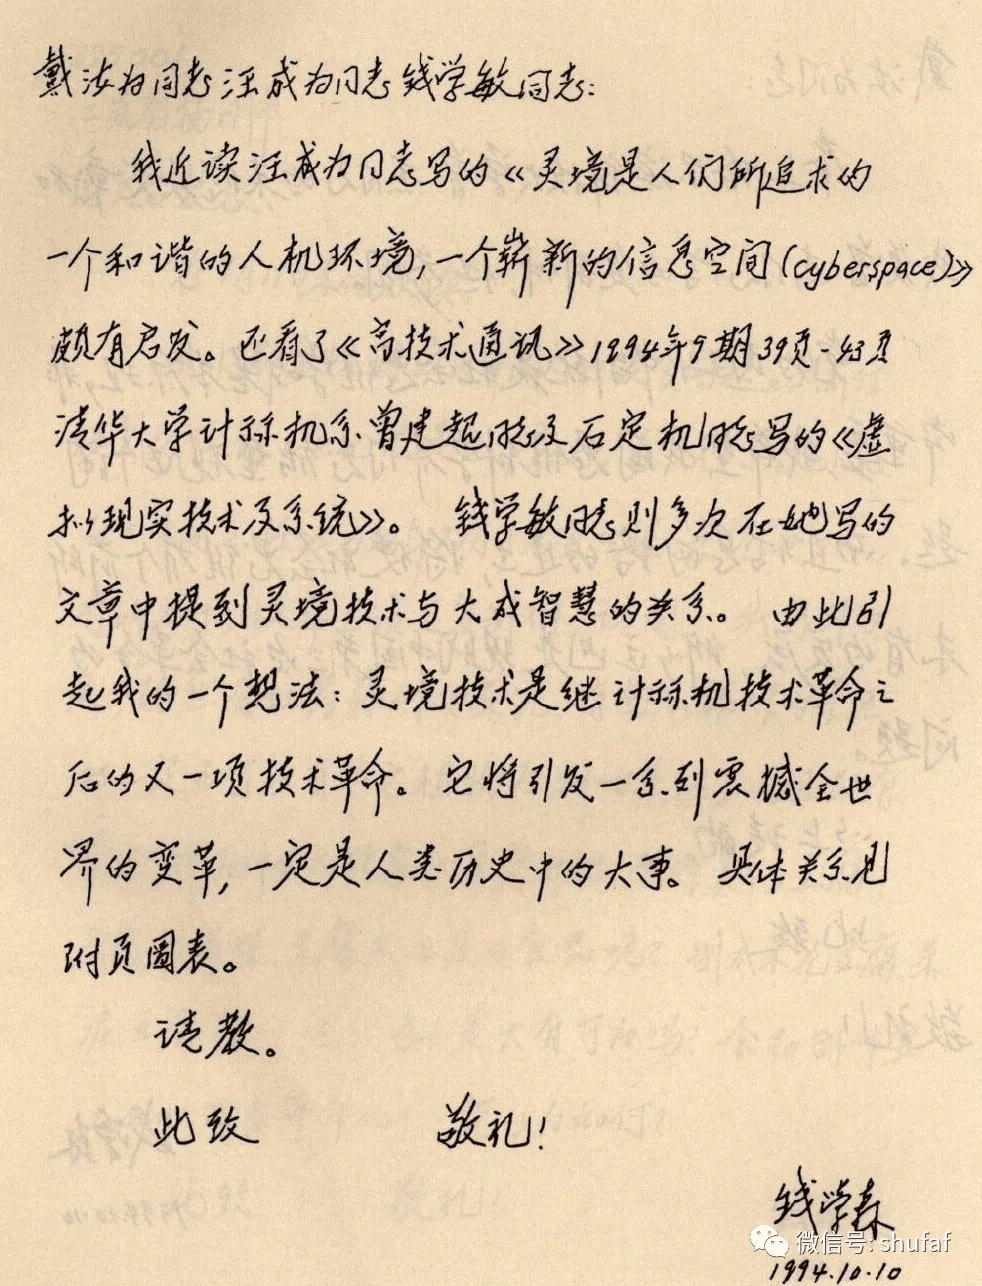 戴汝为同志汪成为同志钱学敏同志：
我近读汪成为同志写的《灵境是人们所追求的
一个和谐的人机环境，一个崭新的信息空间(cyberspace)》
颇有启发。还看了《高技术通讯》1994年9期39页-43页
清华大学计祘机系曾建超同志及石定机同志写的《虚
拟现实技术及系统》。 钱学敏同志则多次在她写的
文章中提到灵境技术与大成智慧的关系。 由此引
起我的一个想法：灵境技术是继计祘机技术革命之
后的又一项技术革命。它将引发一系列震撼全世
界的变革，一定是人类历史中的大事。 具体关系见
附页圖表。
请教。
此致 敬礼！
钱学森
微信号: shufaf
1994.10.10